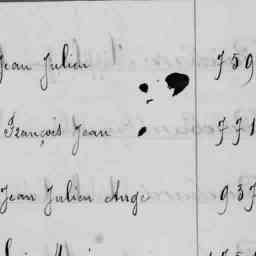 Jean Julien 759
François Jean 771
Jean Julien Ange 937